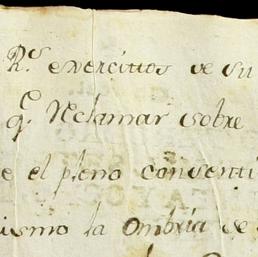 R.s exercitios de su
q.e Reclamar sobre
e el pleno consenti
ismo la Ombria de